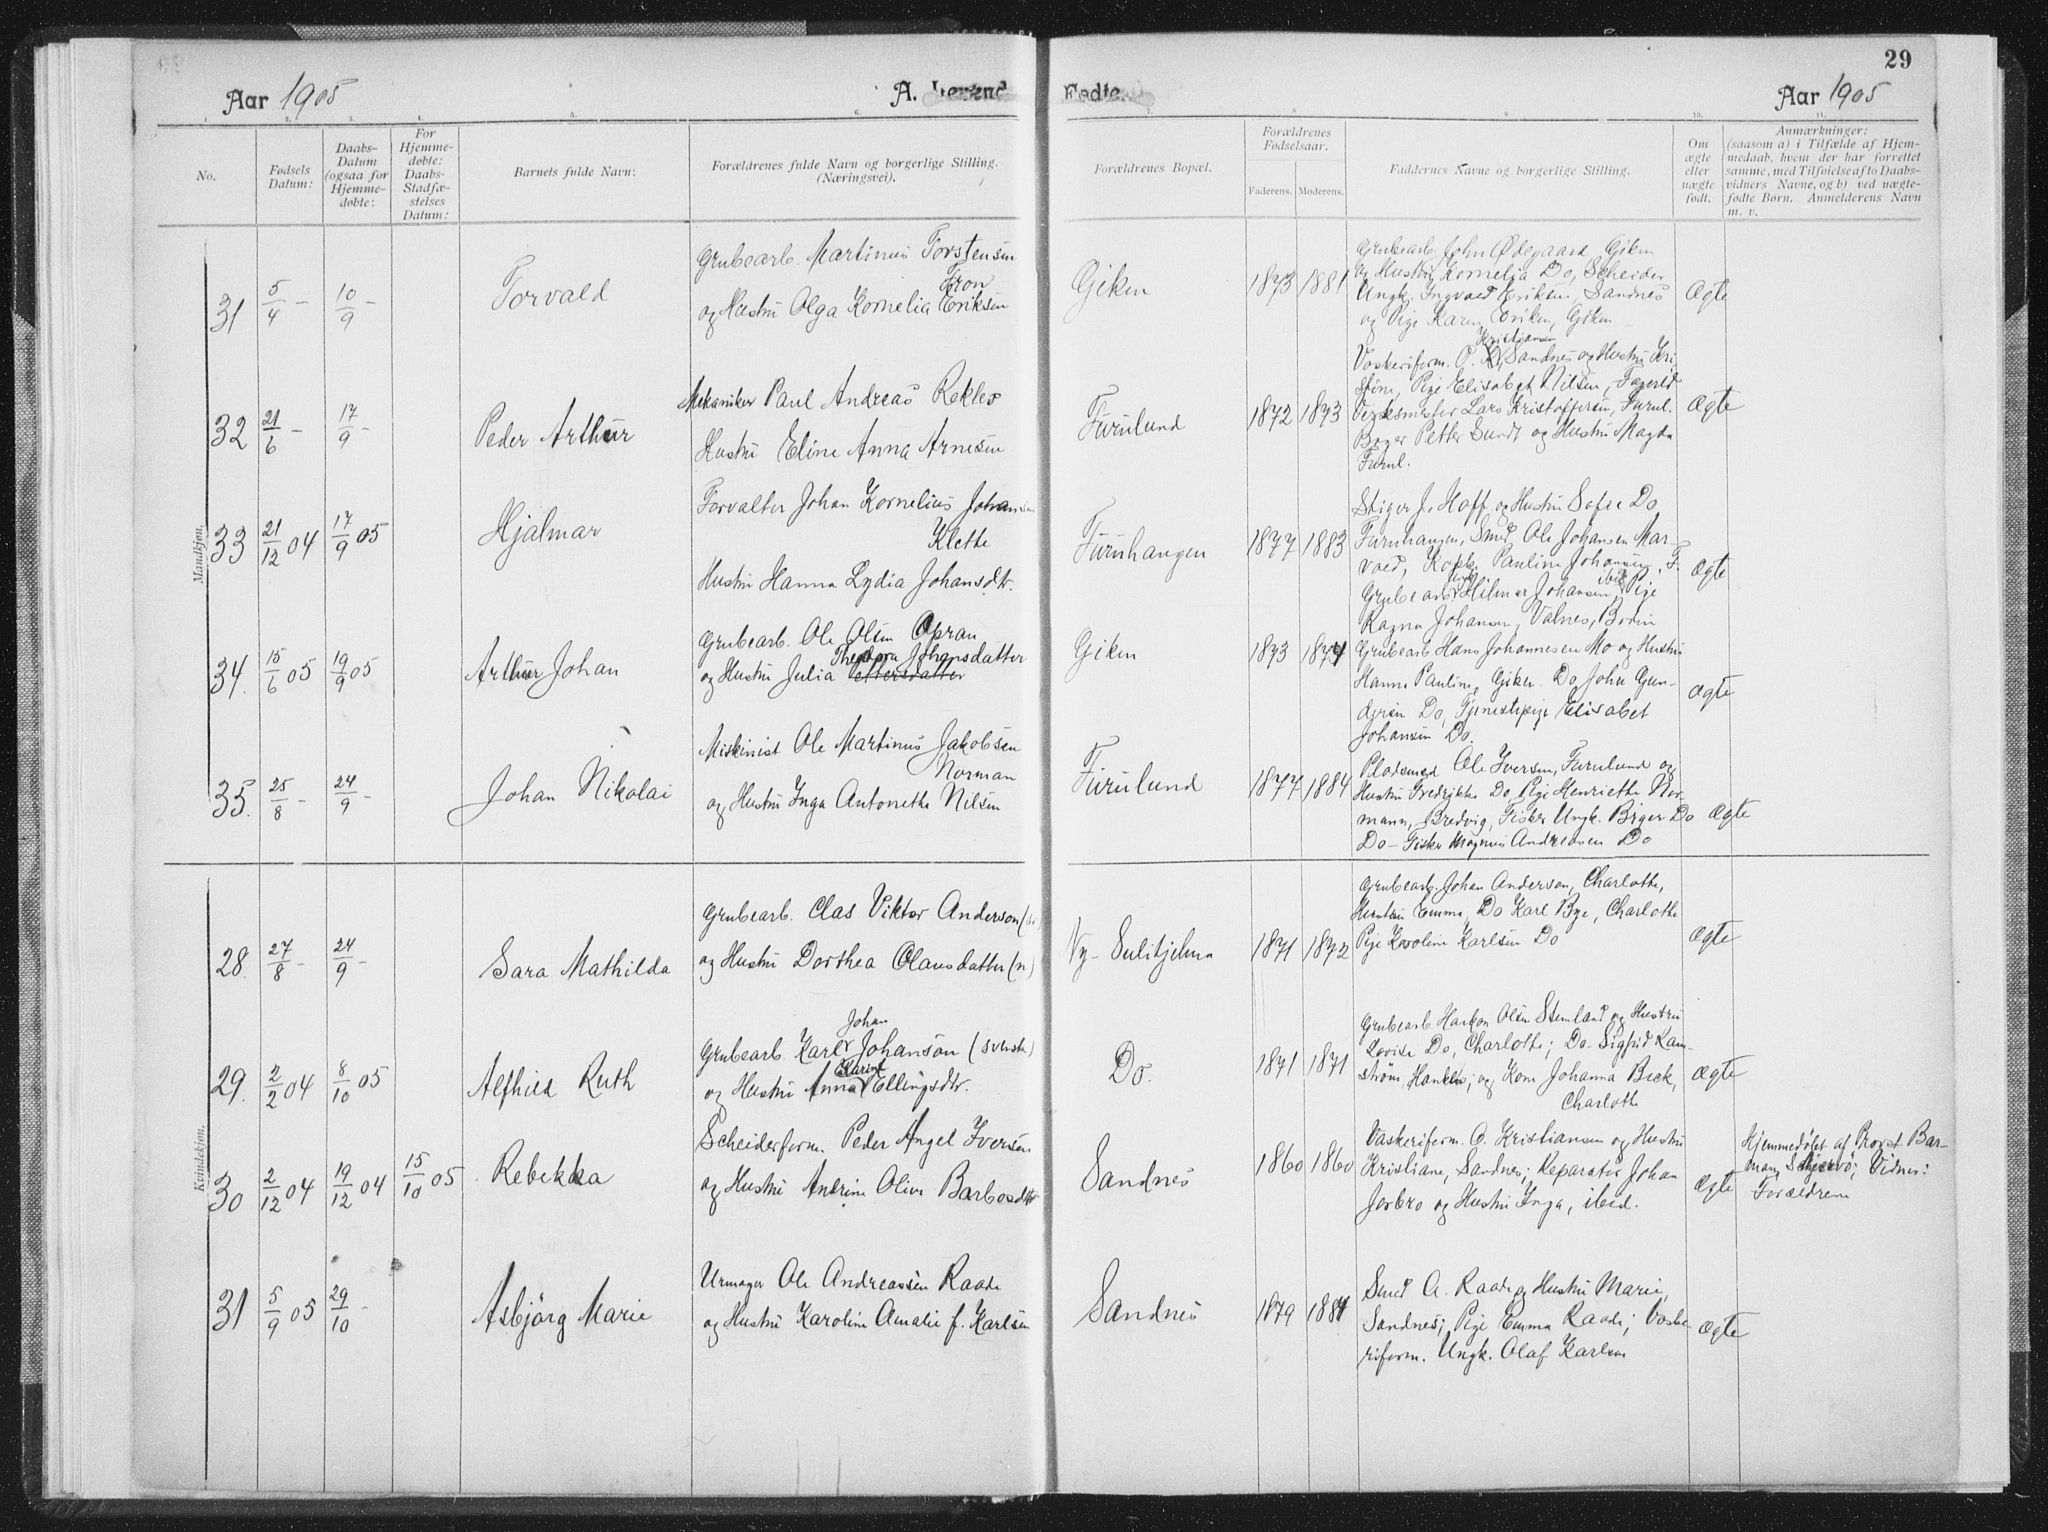 29
Aar 1905
A. Levende
Fødte.
Aar 1905
1. 2. 3. 4. 5. 6. 7. 8. 9. 10. 11.
No.
Fødsels Datum:
Daabs-Datum (ogsaa for Hjemme-døbte:
For Hjemme-døbte: Daabs-Stadfæ-stelses Datum:
Barnets fulde Navn:
Forældrenes fulde Navn og borgerlige Stilling. (Næringsvei).
Forældrenes Bopæl.
Forældrenes Fødselsaar.
Faderens. Moderens.
Faddernes Navne og borgerlige Stilling.
Om ægte eller nægte født.
Anmærkninger: (saasom a) i Tilfælde af Hjem-medaab, hvem der har forrettet samme, med Tilføielse af to Daabs-vidners Navne, og b) ved nægte-fødte Børn. Anmelderens Navn m. v.
Mandkjøn.
31 5/4 – 10/9 –
Torvald
Grubearb. Martinus Torstensen
Tron
og Hustru Olga Kornelia Eriksen
Giken
1873 1881
Grubearb. John Ødegaard, Giken
og Hustru Kornelia Do, Scheider
Ungk. Ingvald Eriksen, Sandnes
og Pige Karen Eriken, Giken
Ægte
32 21/6 – 17/9 –
Peder Arthur
Mekaniker Paul Andreas Rekles
Hustru Eline Anna Arnesen
Furulund
1872 1873
Kristiansen
Vaskeriform. O. Sandnes og Hustru Kri
stine, Pige Elisabet Nilsen, Fagerld
Verksmester Lars Kristoffersen, Furul.
Bager Petter Sundt og Hustru Magda
Furul.
Ægte
33 21/12 04 17/9 05
Hjalmar
Forvalter Johan Kornelius Johansen
Klette
Hustru Hanna Lydia Johansdtr.
Furuhaugen
1877 1883
Stiger J. Hoff og Hustru Sofie Do,
Furuhaugen, Smed Ole Johansen Mar-
vold, Kokk. Pauline Johansen, F.
Grubearb. Ungk. Hilmar Johansen, ibid Pige
Ragna Johansen, Valnes, Bodin
Ægte
34. 15/6 05 19/9 05
Arthur Johan
Grubearb. Ole Olsen Opran
Theodora Johansdatter
og Hustru Julia Pettersdatter
Giken
1873 1874
Grubearb Hans Johannesen Mo og Hustru
Hanna Pauline, Giken. Do John Gun-
dersen Do, Tjenestepige Elisabet
Johansen Do.
Ægte
35. 25/8 – 24/9 –
Johan Nikolai
Maskinist Ole Martinus Jakobsen
Norman
og Hustru Inga Antonette Nilsen
Furulund
1877 1884
Pladsmed Ole Iversen, Furulund og
Hustru Fredrikke Do, Pige Henriette Nor-
mann, Bredvig, Fisker Ungk. Birger Do
Do – Fisker Magnus Andreasen Do
Ægte
Kvindekjøn.
28. 27/8 – 24/9 –
Sara Mathilda
Grubearb. Clas Viktor Anderson (sv.)
og Hustru Dorthea Olausdatter (n)
Ny-Sulitjelma
1871 1872
Grubearb. Johan Anderson, Charlotte,
Hustru Emma, Do Karl Bye, Charlotte
Pige Karoline Karlsen Do
Ægte
29. 2/2 04 8/10 05
Alfhild Ruth
Johan
Grubearb. Karl Johanson (svensk)
Karine
og Hustru Anna Ellingsdtr.
Do.
1871 1871
Grubearb Haakon Olsen Stemland og Hustru
Lovise Do, Charlotte; Do Sigfrid Ram-
strøm, Hanken; og Kone Johanna Beck,
Charlotte
Ægte
30 2/12 04 19/12 04 15/10 05
Rebekka
Scheiderform. Peder Angel Iversen
og Hustru Andrine Oline Barbosdtr
Sandnes
1860 1860
Vaskeriform. O. Kristiansen og Hustru
Kristiane, Sandnes; Reparatør Johan
Jerbro og Hustru Inga, ibid.
Ægte
Hjemmedøbt af Provst Bar-
man, Skjærvø; Vidner:
Forældrene
31 5/9 05 29/10 –
Asbjørg Marie
Urmager Ole Andreassen Raade
og Hustru Karoline Amalie f. Karlsen
Sandnes
1879 1881
Smed A. Raade og Hustru Marie,
Sandnes; Pige Emma Raade; Vaske-
riform. Ungk. Olaf Karlsen
Ægte